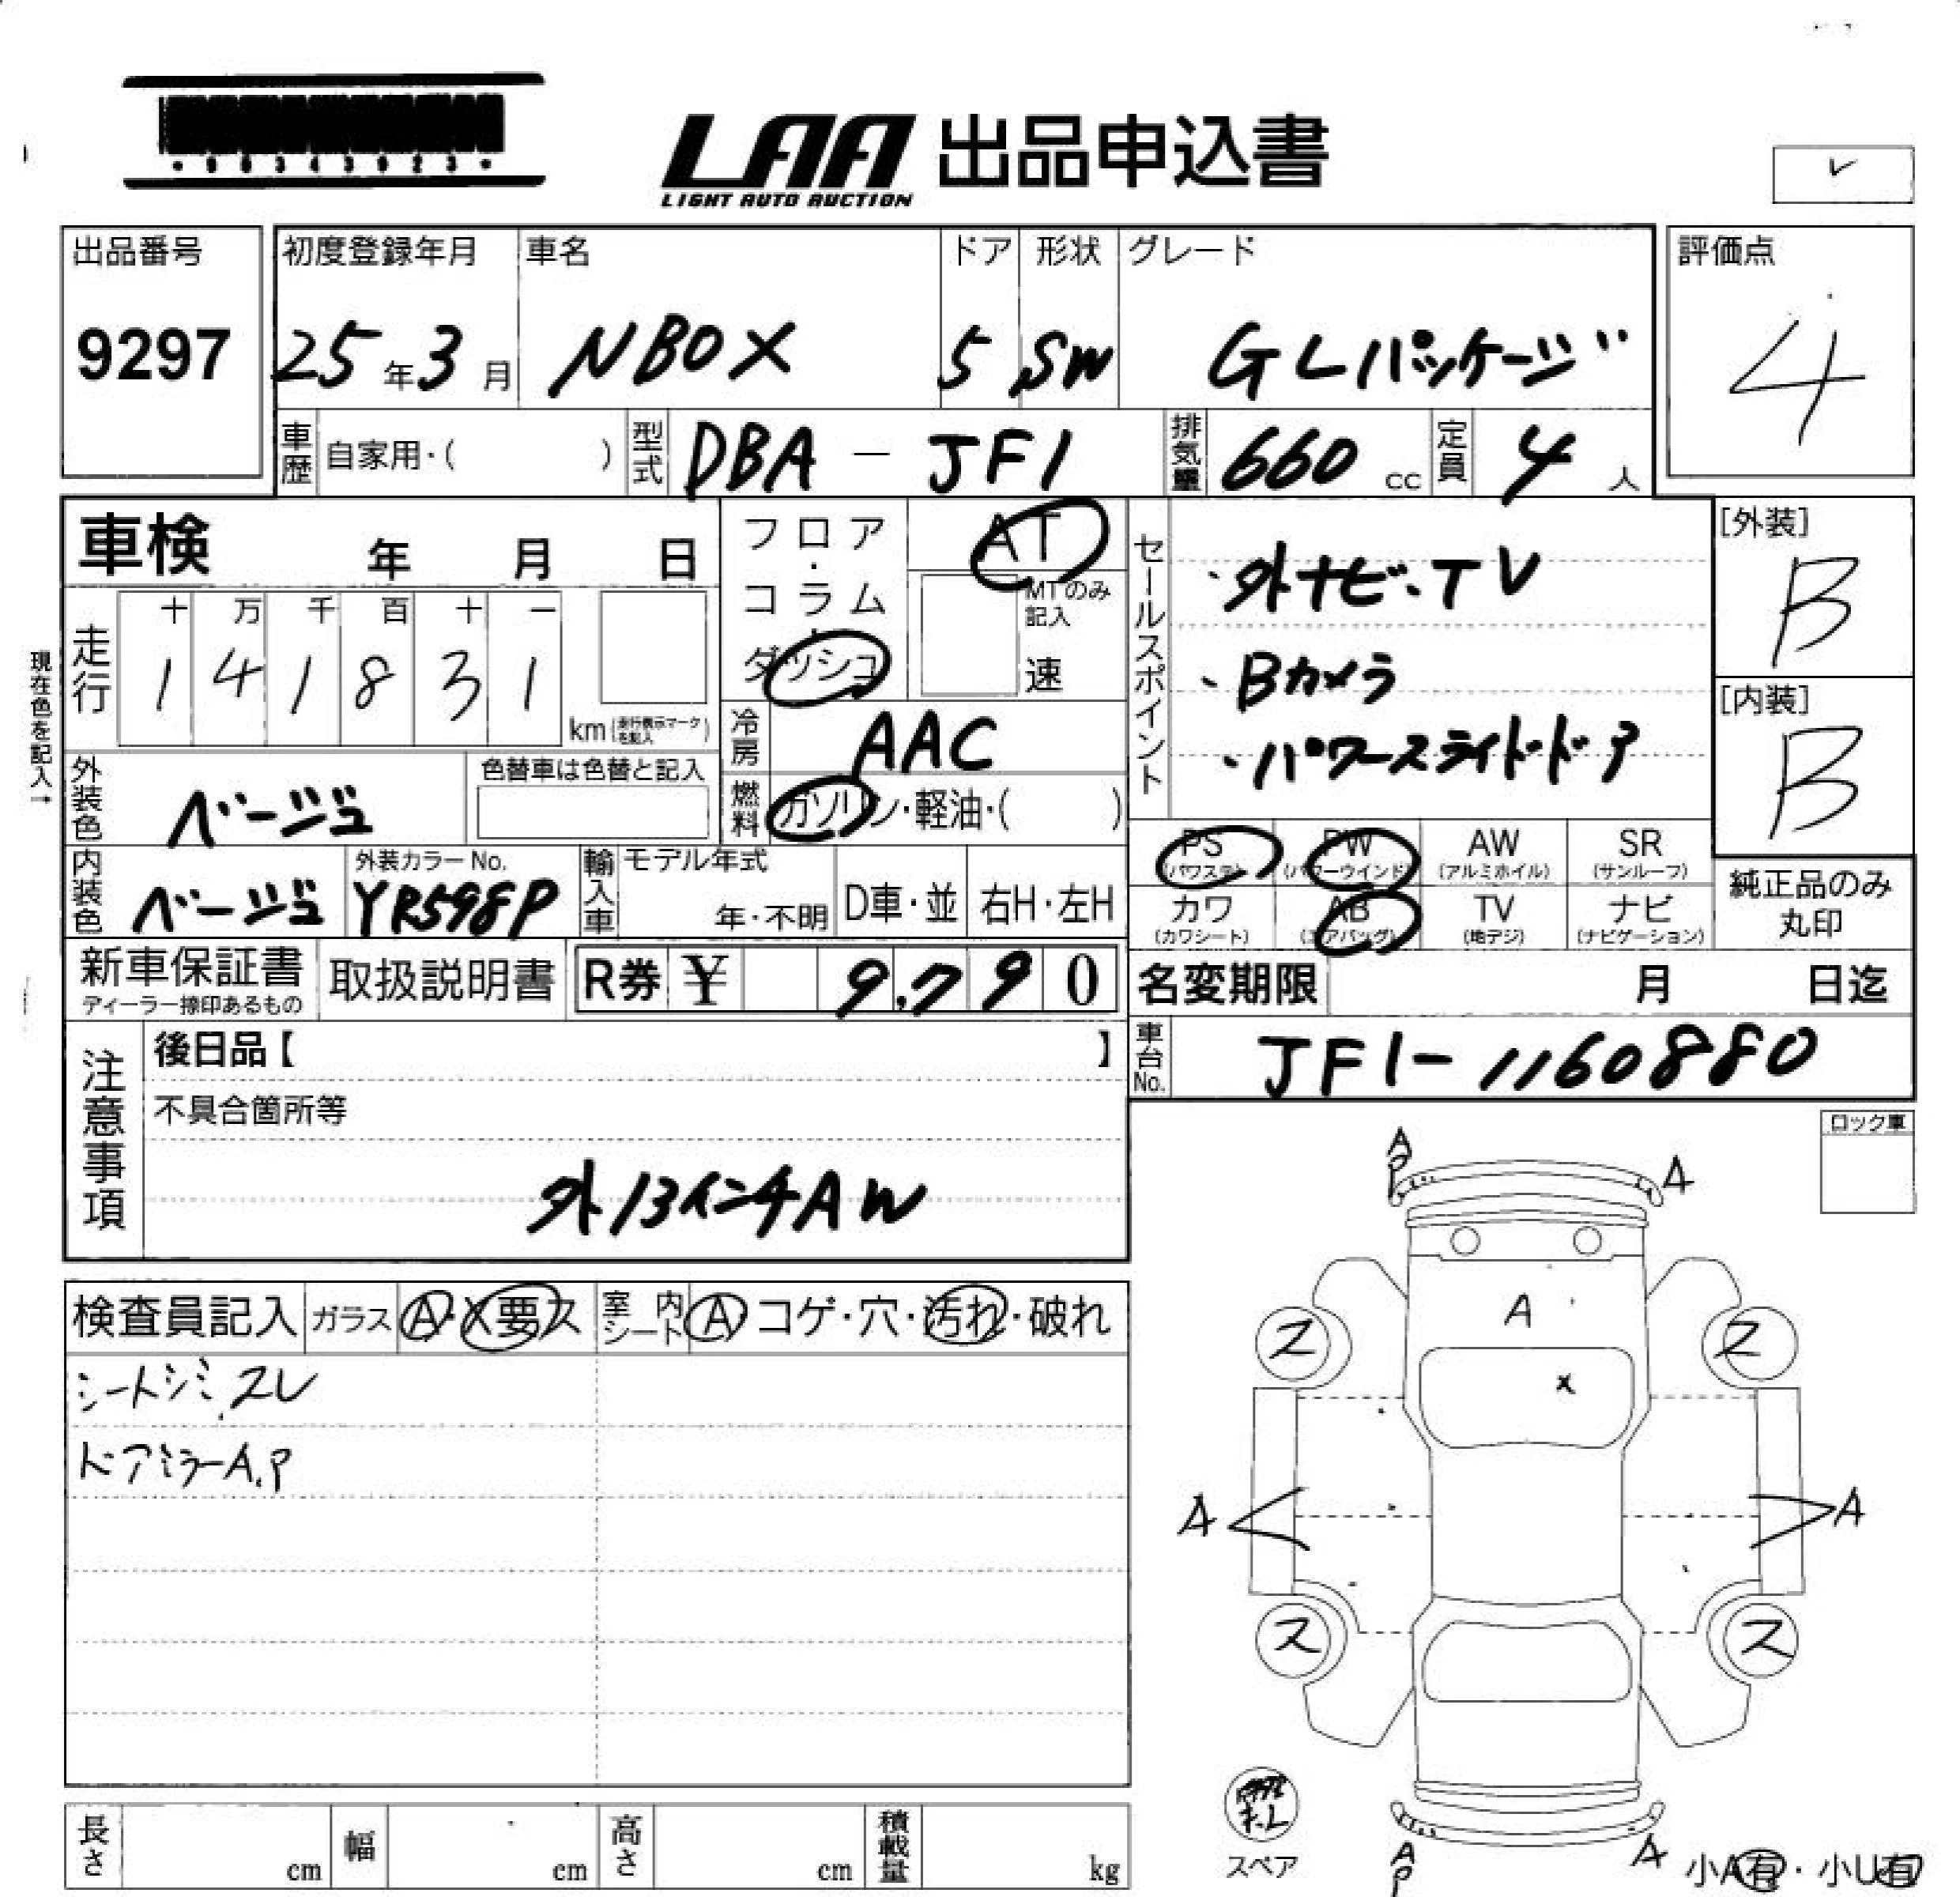 ・00343023・
LAA 出品申込書
LIGHT AUTO AUCTION
レ
出品番号 初度登録年月 車名 ドア 形状 グレード 評価点
9297 25年3月 NBOX 5 SW GLパッケージ 4
車歴 自家用・( ) 型式 DBA-JF1 排気量 660cc 定員 4人
車検 年 月 日
フロア・コラム・ダッシュ AT
MTのみ記入
速
セールスポイント
・外ナビ・TV
・Bカメラ
・パワースライドドア
[外装]
B
[内装]
B
現在色を記入→
走行 十 万 千 百 十 一
1 4 1 8 3 1
km(走行表示マークを記入)
冷房 AAC
外装色 ベージュ 色替車は色替と記入
燃料 ガソリン・軽油・( )
内装色 ベージュ 外装カラーNo. YR598P
輸入車 モデル年式 年・不明 D車・並 右H・左H
PS (パワステ) PW (パワーウインド) AW (アルミホイル) SR (サンルーフ)
カワ (カワシート) AB (エアバッグ) TV (地デジ) ナビ (ナビゲーション)
純正品のみ
丸印
新車保証書 取扱説明書 R券 ¥ 9,790
ディーラー捺印あるもの
名変期限 月 日迄
車台No. JF1-1160880
注意事項
後日品【 】
不具合箇所等
外13インチAW
ロック車
検査員記入 ガラス A・X要ス 室内シート A コゲ・穴・汚れ・破れ
シートシミ、スレ
ドアミラーA.P
A
P
A
A
ス ス
X
A A
ス ス
スペア
A
P
A
小A有・小U有
長さ cm 幅 cm 高さ cm 積載量 kg